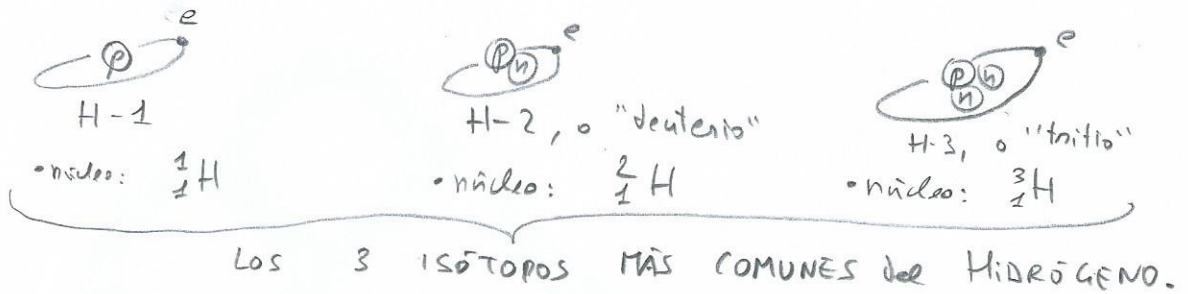 e
p
H-1
•núcleo: ¹₁H
e
p n
H-2, o "deuterio"
•núcleo: ²₁H
e
p n
n
H-3, o "tritio"
•núcleo: ³₁H
LOS 3 ISÓTOPOS MÁS COMUNES del HIDRÓGENO.